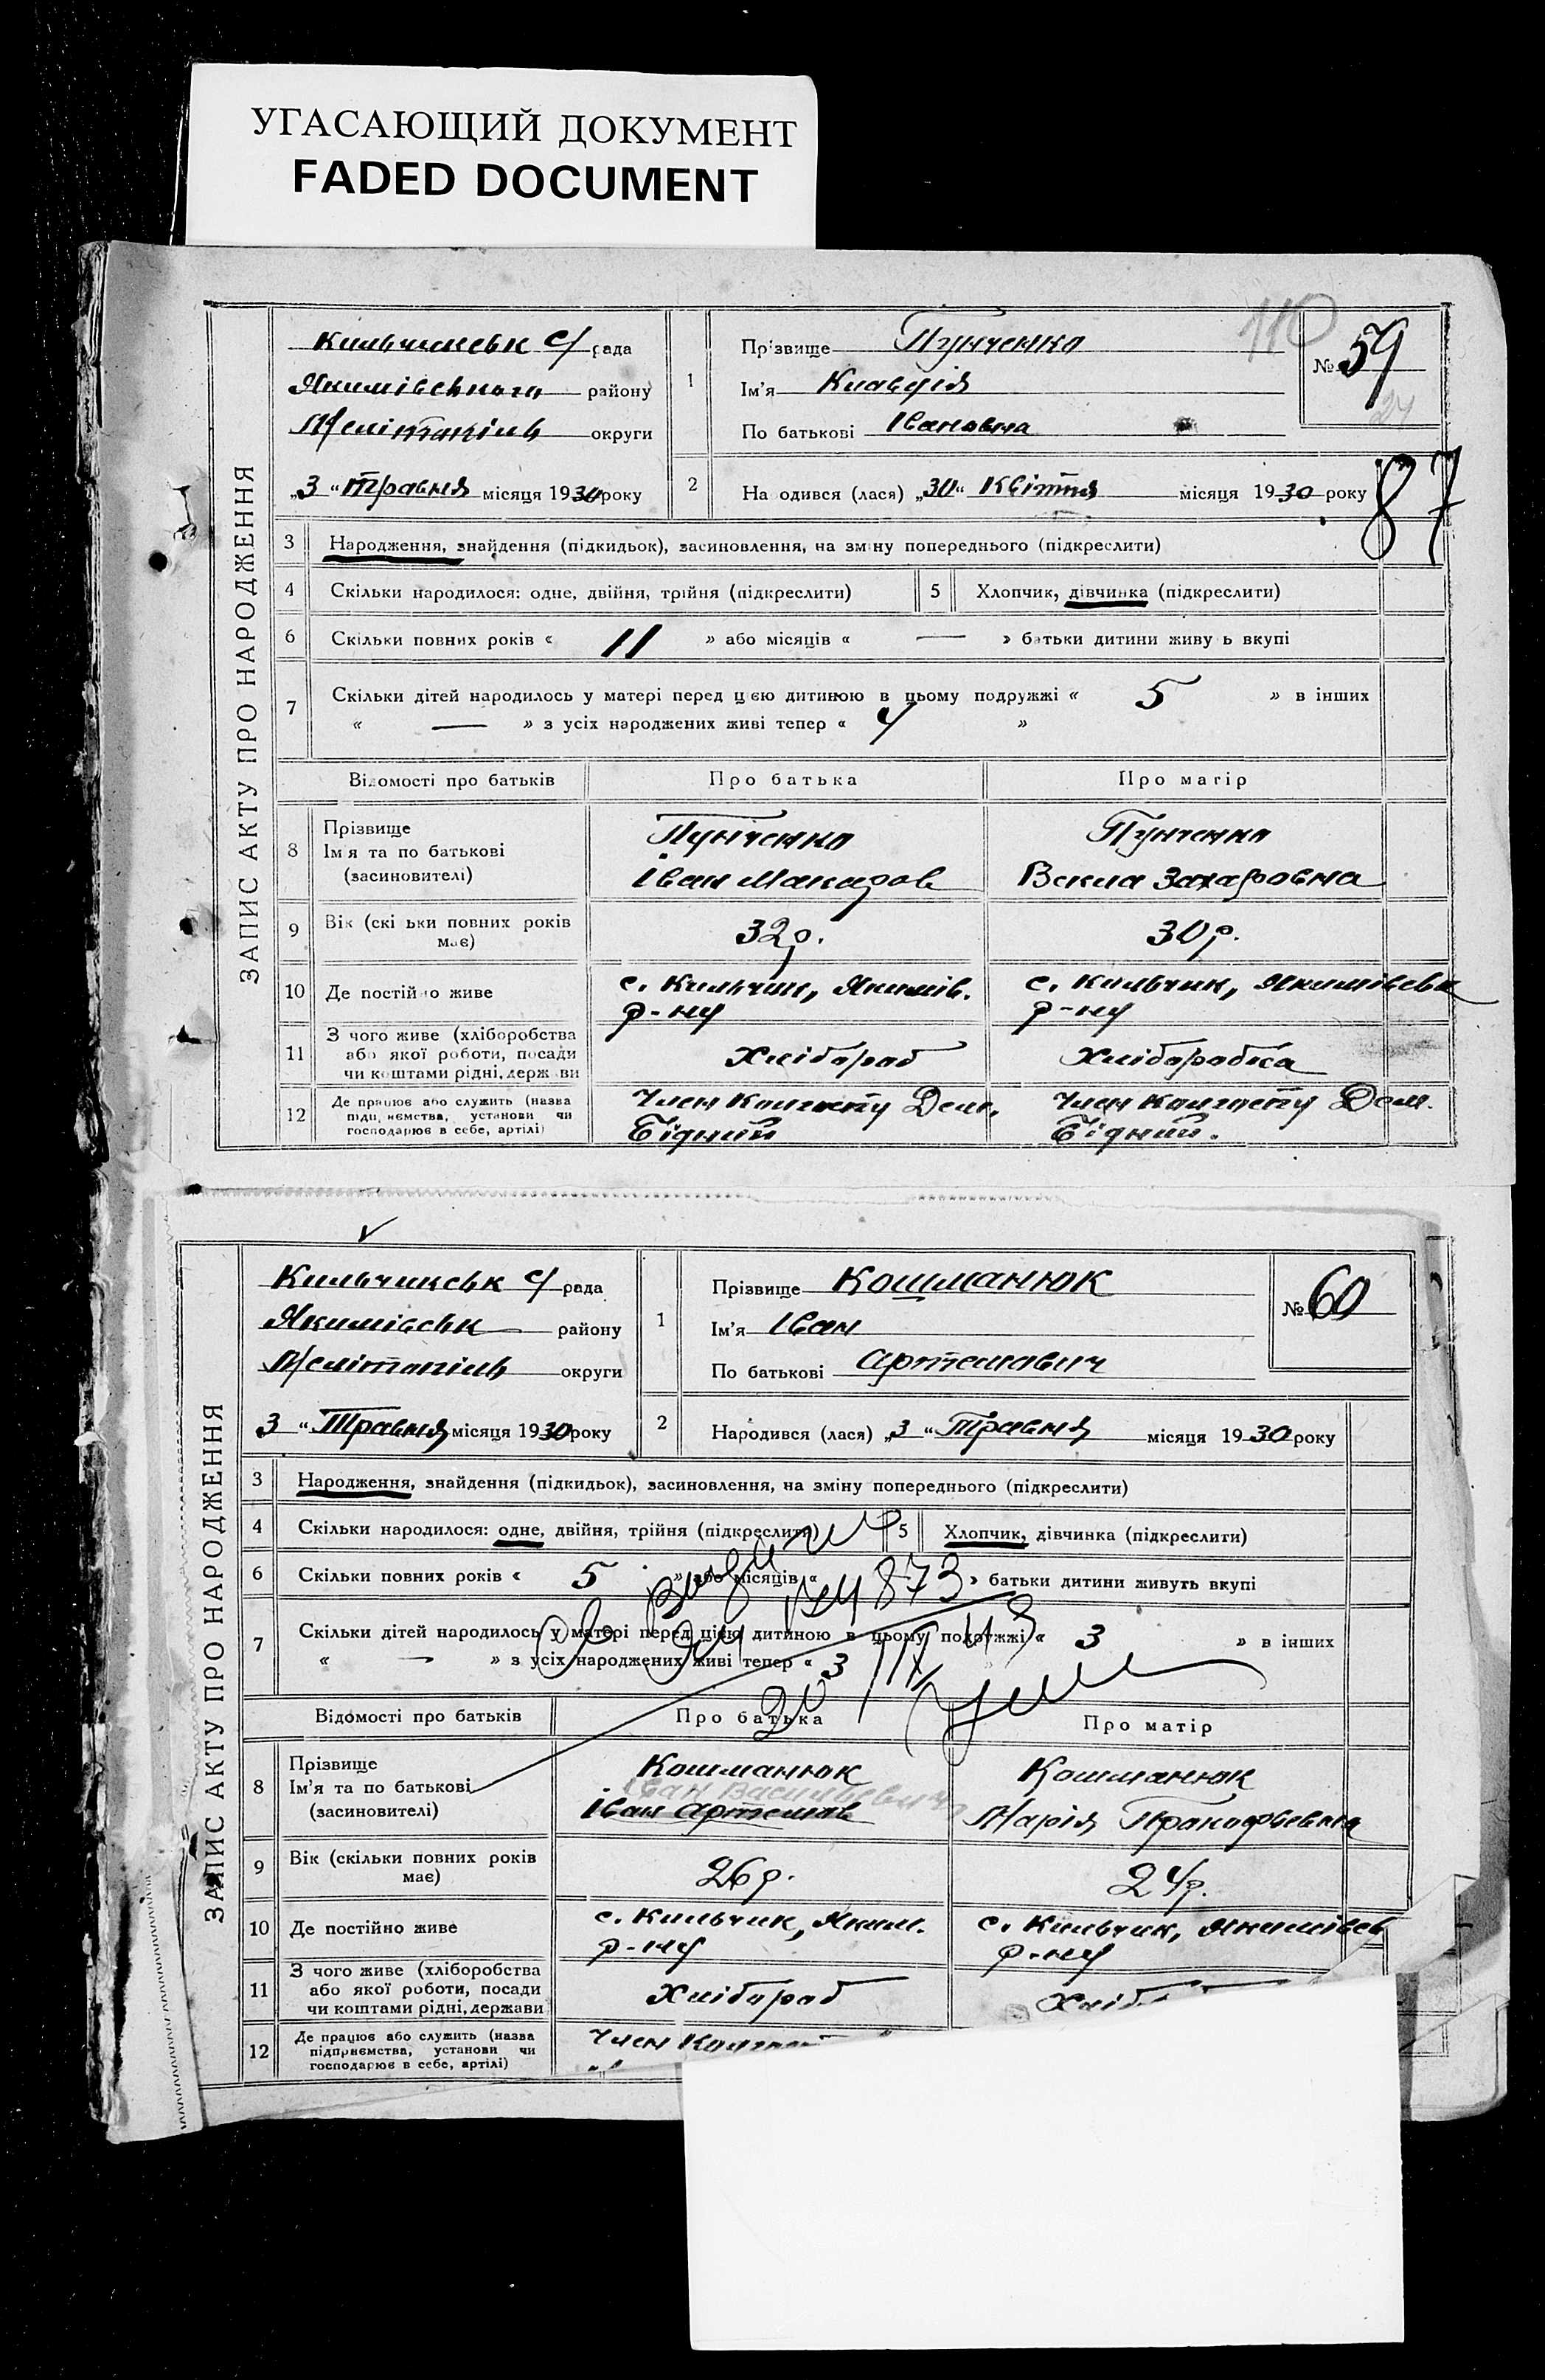 УГАСАЮЩИЙ ДОКУМЕНТ
FADED DOCUMENT
ЗАПИС АКТУ ПРО НАРОДЖЕННЯ
110
Кильчикськ с/ рада
Якимівського району
Мелітопіль округи
„3“ травня місяця 1930 року
1 Прізвище Пунченко
Ім'я Клавдія
По батькові Івановна
№ 59
24
87
2 На одився (лася) „30“ Квітня місяця 1930 року
3 Народження, знайдення (підкидьок), засиновлення, на зміну попереднього (підкреслити)
4 Скільки народилося: одне, двійня, трійня (підкреслити) 5 Хлопчик, дівчинка (підкреслити)
6 Скільки повних років « 11 » або місяців « — » батьки дитини живу ь вкупі
7 Скільки дітей народилось у матері перед цією дитиною в цьому подружжі « 5 » в інших
« — » з усіх народжених живі тепер « 4 »
Відомості про батьків Про батька Про матір
8 Прізвище
Ім'я та по батькові
(засиновителі)
Пунченко
Іван Макаров
Пунченко
Векла Захаровна
9 Вік (скі ьки повних років
має)
32 р.
30 р.
10 Де постійно живе
с. Кильчик, Якимів.
р-ну
с. Кильчик, Якимівськ
р-ну
11 З чого живе (хліборобства
або якої роботи, посади
чи коштами рідні, держ ви
Хлібороб
Хлібаробка
12 Де працює або служить (назва
підприємства, установи чи
господарює в себе, артілі)
Член Колгоспу Дем.
Бідний
Член Колгоспу Дем.
Бідний.
ЗАПИС АКТУ ПРО НАРОДЖЕННЯ
Кильчикськ с/ рада
Якимівськ району
Мелітопіль округи
3 “ Травня місяця 1930 року
1 Прізвище Кошманюк
Ім'я Іван
По батькові Артемович
№ 60
2 Народився (лася) „3“ Травня місяця 1930 року
3 Народження, знайдення (підкидьок), засиновлення, на зміну попереднього (підкреслити)
4 Скільки народилося: одне, двійня, трійня (підкреслити) 5 Хлопчик, дівчинка (підкреслити)
6 Скільки повних років « 5 » або місяців « » батьки дитини живуть вкупі
7 Скільки дітей народилось у матері перед цією дитиною в цьому подружжі « 3 » в інших
« — » з усіх народжених живі тепер « 3
873
Відомості про батьків Про батька Про матір
8 Прізвище
Ім'я та по батькові
(засиновителі)
Кошманюк
Іван Васильевич
Іван Артемов
Кошманюк
Марія Пракофьевна
9 Вік (скільки повних років
має)
26 р.
24 р.
10 Де постійно живе
с. Кильчик, Яким.
р-ну
с. Кильчик, Якимівськ
р-ну
11 З чого живе (хліборобства
або якої роботи, посади
чи коштами рідні, держави
Хлібороб
12 Де працює або служить (назва
підприємства, установи чи
господарює в себе, артілі)
Член